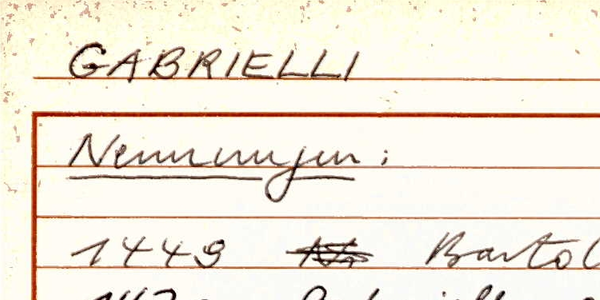 GABRIELLI
Nennungen:
1449 Bartol